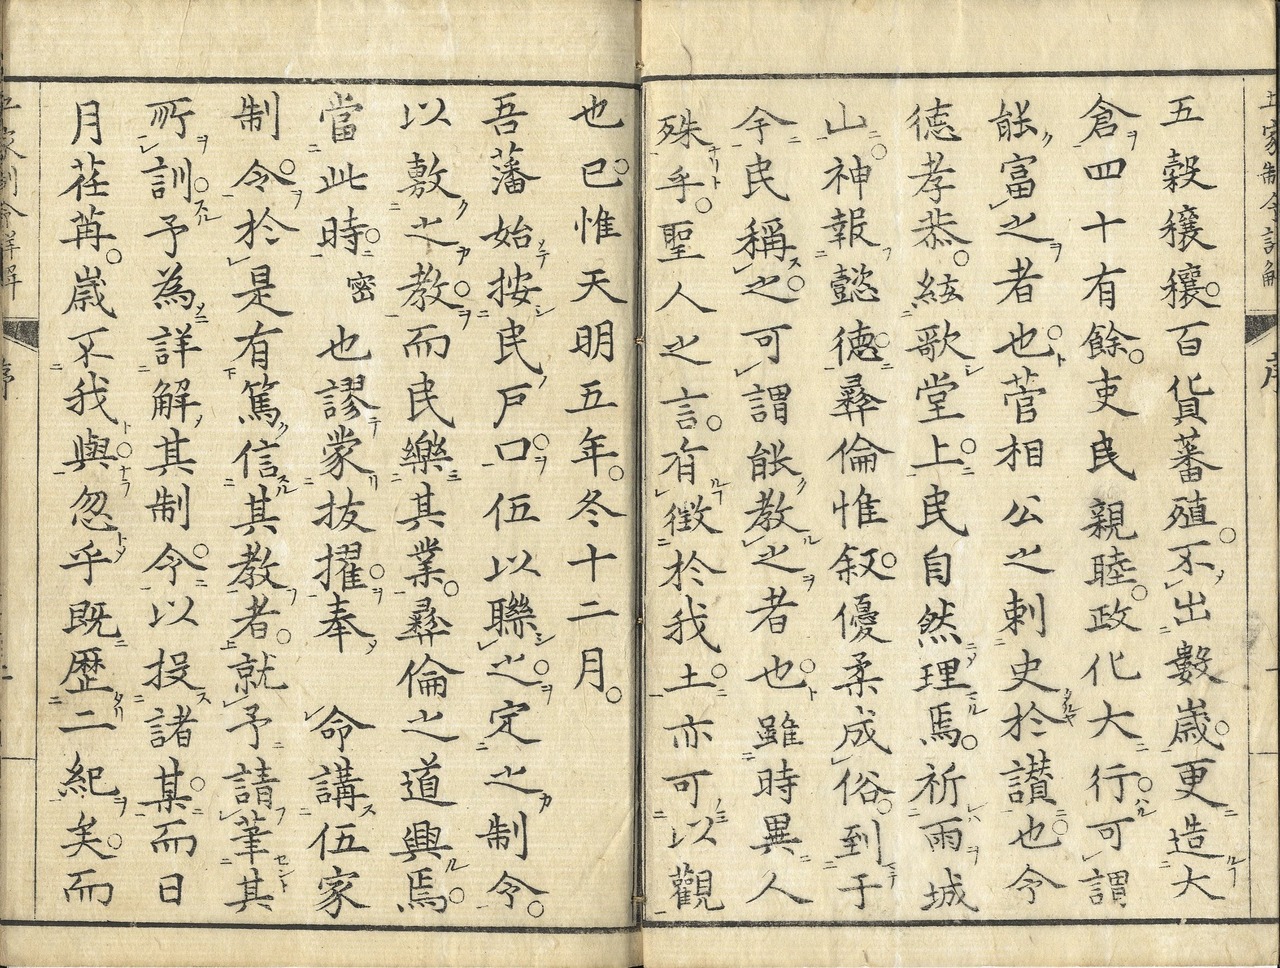 五家制令詳解
序
五穀穰穰百貨蕃殖不出數歳更造大
倉四十有餘吏民親睦政化大行可謂
能富之者也菅相公之刺史於讃也令
徳孝恭絃歌堂上民自然理焉祈雨城
山神報懿徳彝倫惟叙優柔成俗到于
今民稱之可謂能教之者也雖時異人
殊乎聖人之言有徴於我土亦可以觀
也已惟天明五年冬十二月
吾藩始按民戸口伍以聯之定之制令
以敷之教而民樂其業彝倫之道興焉
當此時密也謬蒙抜擢奉命講伍家
制令於是有篤信其教者就予請筆其
所訓予為詳解其制令以投諸某而日
月荏苒歳不我與忽乎既歴二紀矣而
五家制令詳解
序